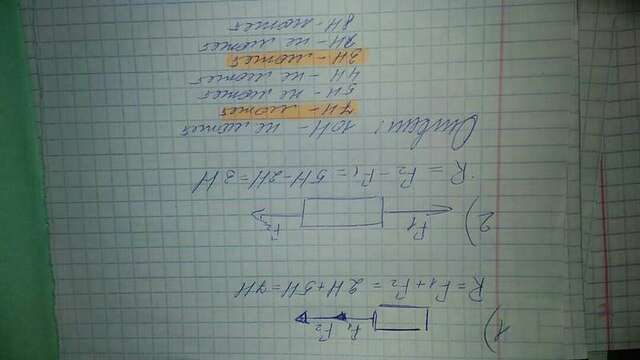 1)
F₁ F₂
R = F₁ + F₂ = 2Н + 5Н = 7Н
2)
F₁ F₂
R = F₂ - F₁ = 5Н - 2Н = 3Н
Ответ:
10Н - не может
7Н - может
5Н - не может
4Н - не может
3Н - может
2Н - не может
8Н - может